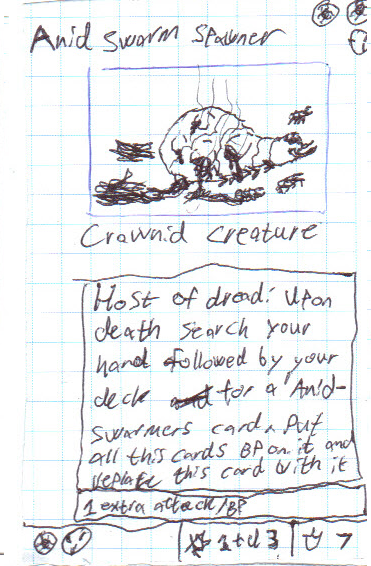 Anid swarm spawner
Crawnid creature
Host of dread: Upon
death search your
hand followed by your
deck for a "Anid-
swarmers card. Put
all this cards BP on it and
replace this card with it
1 extra attack/BP
1+d 3
7